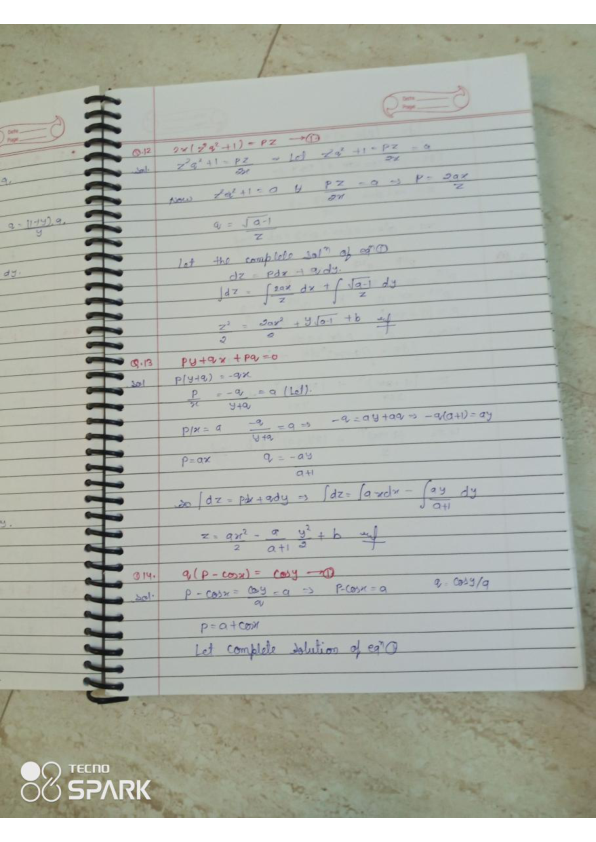 a = [1+y] q,
y
dy.
y.
Q.12 2x(z²q²+1) = pz → ①
Sol. z²q²+1 = pz/2x = Let z²q²+1 = pz/2x = a
Now z²q²+1 = a y pz/2x = a ⇒ p = 2ax/z
q = √a-1/z
Let the complete solⁿ of eqⁿ ①
dz = pdx + qdy
∫dz = ∫2ax/z dx + ∫√a-1/z dy
z²/2 = 2ax²/2 + y√a-1 + b
Q.13 py+qx+pq=0
Sol p(y+q) = -qx
p/x = -q/y+q = a (Let).
p/x = a -q/y+q = a ⇒ -q = ay+aq ⇒ -q(a+1) = ay
p=ax q = -ay/a+1
So ∫dz = pdx+qdy ⇒ ∫dz = ∫axdx - ∫ay/a+1 dy
z = ax²/2 - a/a+1 y²/2 + b
Q14. q(p-cosx) = cosy → ①
Sol. p-cosx = cosy/q = a ⇒ p-cosx = a q = cosy/a
p = a+cosx
Let complete solution of eqⁿ ①
TECNO
SPARK